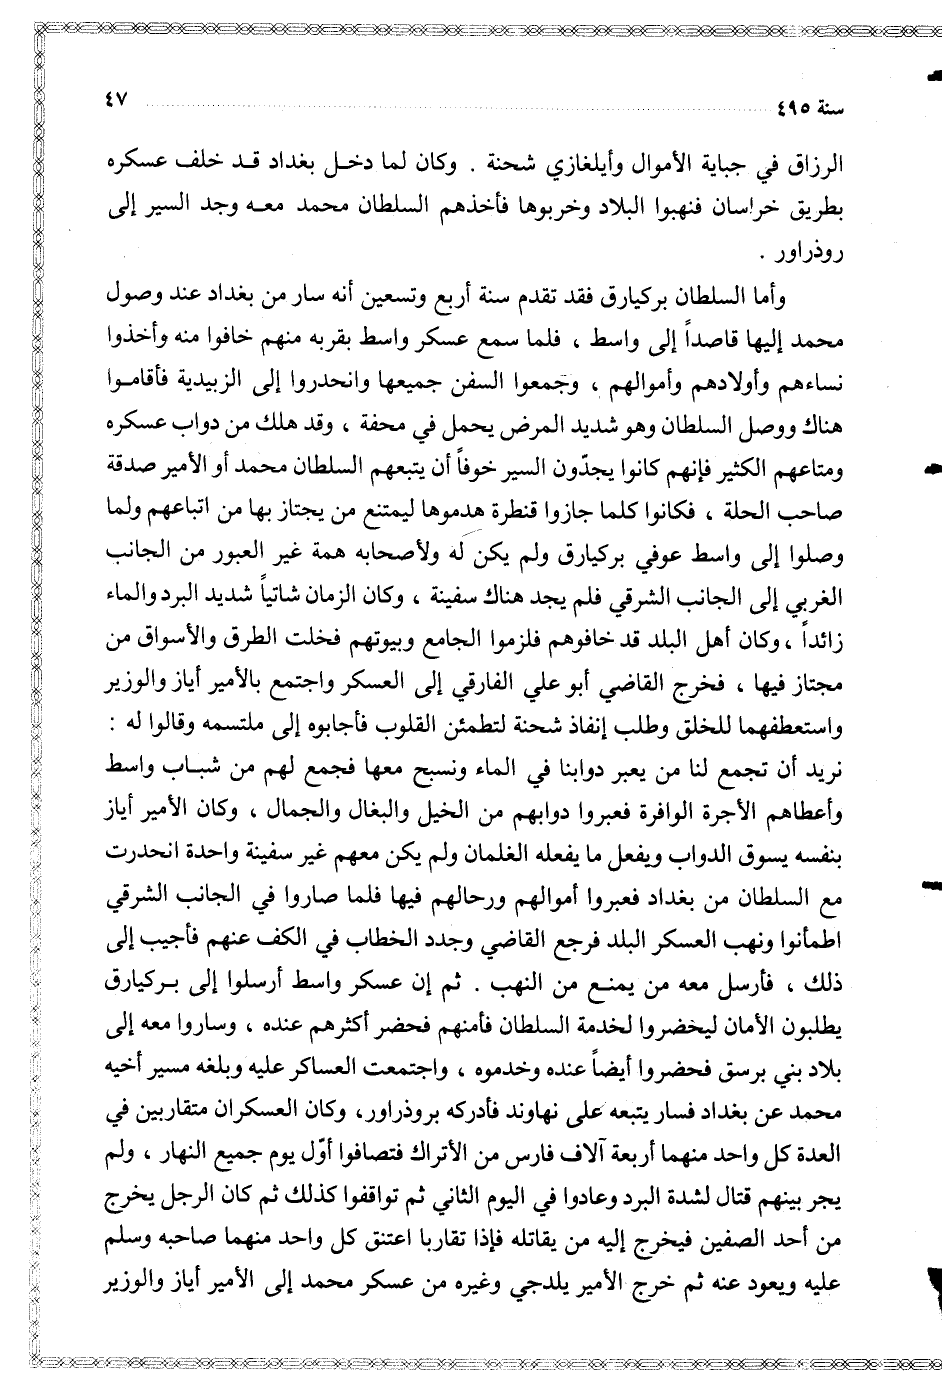 سنة ٤٩٥ ................ ٤٧
الرزاق في جباية الأموال وأيلغازي شحنة . وكان لما دخل بغداد قد خلف عسكره
بطريق خراسان فنهبوا البلاد وخربوها فأخذهم السلطان محمد معه وجد السير إلى
روذراور .
وأما السلطان بركيارق فقد تقدم سنة أربع وتسعين أنه سار من بغداد عند وصول
محمد إليها قاصداً إلى واسط ، فلما سمع عسكر واسط بقربه منهم خافوا منه وأخذوا
نساءهم وأولادهم وأموالهم ، وجمعوا السفن جميعها وانحدروا إلى الزبيدية فأقاموا
هناك ووصل السلطان وهو شديد المرض يحمل في محفة ، وقد هلك من دواب عسكره
ومتاعهم الكثير فإنهم كانوا يجدّون السير خوفاً أن يتبعهم السلطان محمد أو الأمير صدقة
صاحب الحلة ، فكانوا كلما جازوا قنطرة هدموها ليمتنع من يجتاز بها من اتباعهم ولما
وصلوا إلى واسط عوفي بركيارق ولم يكن له ولأصحابه همة غير العبور من الجانب
الغربي إلى الجانب الشرقي فلم يجد هناك سفينة ، وكان الزمان شاتياً شديد البرد والماء
زائداً ، وكان أهل البلد قد خافوهم فلزموا الجامع وبيوتهم فخلت الطرق والأسواق من
مجتاز فيها ، فخرج القاضي أبو علي الفارقي إلى العسكر واجتمع بالأمير أياز والوزير
واستعطفهما للخلق وطلب إنفاذ شحنة لتطمئن القلوب فأجابوه إلى ملتسمه وقالوا له :
نريد أن تجمع لنا من يعبر دوابنا في الماء ونسبح معها فجمع لهم من شباب واسط
وأعطاهم الأجرة الوافرة فعبروا دوابهم من الخيل والبغال والجمال ، وكان الأمير أياز
بنفسه يسوق الدواب ويفعل ما يفعله الغلمان ولم يكن معهم غير سفينة واحدة انحدرت
مع السلطان من بغداد فعبروا أموالهم ورحالهم فيها فلما صاروا في الجانب الشرقي
اطمأنوا ونهب العسكر البلد فرجع القاضي وجدد الخطاب في الكف عنهم فأجيب إلى
ذلك ، فأرسل معه من يمنع من النهب . ثم إن عسكر واسط أرسلوا إلى بركيارق
يطلبون الأمان ليحضروا لخدمة السلطان فأمنهم فحضر أكثرهم عنده ، وساروا معه إلى
بلاد بني برسق فحضروا أيضاً عنده وخدموه ، واجتمعت العساكر عليه وبلغه مسير أخيه
محمد عن بغداد فسار يتبعه على نهاوند فأدركه بروذراور، وكان العسكران متقاربين في
العدة كل واحد منهما أربعة آلاف فارس من الأتراك فتصافوا أوّل يوم جميع النهار ، ولم
يجر بينهم قتال لشدة البرد وعادوا في اليوم الثاني ثم تواقفوا كذلك ثم كان الرجل يخرج
من أحد الصفين فيخرج إليه من يقاتله فإذا تقاربا اعتنق كل واحد منهما صاحبه وسلم
عليه ويعود عنه ثم خرج الأمير يلدجي وغيره من عسكر محمد إلى الأمير أياز والوزير